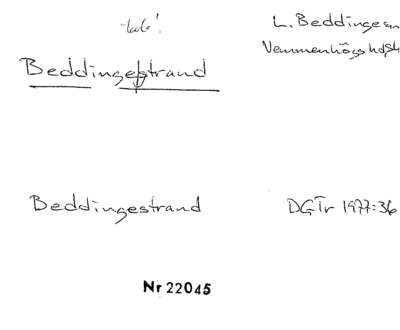 L. Beddinge sn
Vemmenhögs hd Sk
Beddingestrand
Beddingestrand
DGTr 1977:36
Nr 22045